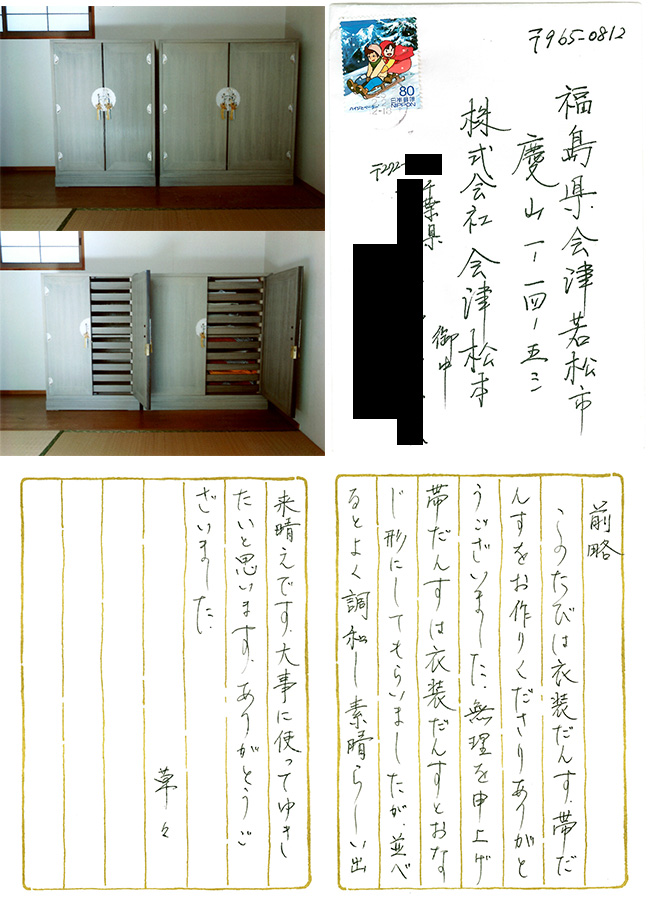 〒965-0812
福島県会津若松市
慶山一-一四-五三
株式会社 会津松本
御中
80
日本郵便
NIPPON
〒272-
千葉県
前略
このたびは衣装だんす、帯だ
んすをお作りくださりありがと
うございました。無理を申上げ
帯だんすは衣装だんすとおな
じ形にしてもらいましたが、並べ
るとよく調和し素晴らしい出
来晴えです。大事に使ってゆき
たいと思います。ありがとうご
ざいました。
草々